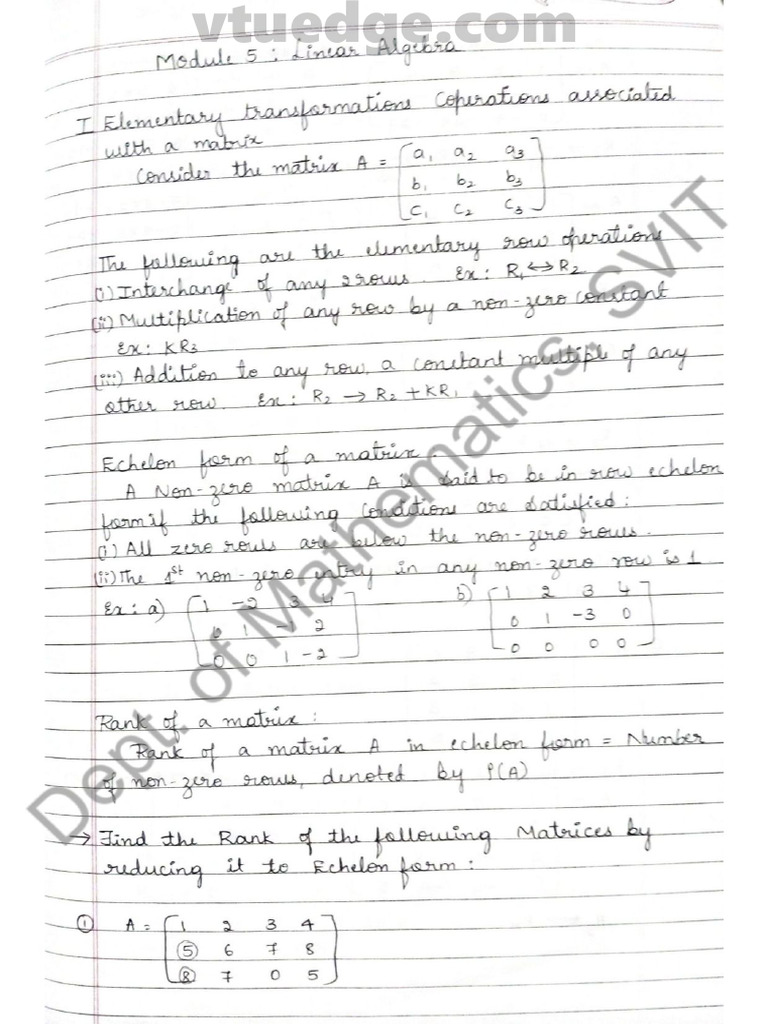 vtuedge.com
Module 5 : Linear Algebra
I Elementary transformations Coperations associated
with a matrix
Consider the matrix A = [a₁ a₂ a₃
b₁ b₂ b₃
c₁ c₂ c₃]
The following are the elementary row operations
(i) Interchange of any 2 rows. Ex: R₁ ↔ R₂
(ii) Multiplication of any row by a non-zero constant
Ex: KR₃
(iii) Addition to any row, a constant multiple of any
other row. Ex: R₂ → R₂ + KR₁
Echelon form of a matrix.
A Non-zero matrix A is said to be in row echelon
form if the following conditions are satisfied:
(i) All zero rows are below the non-zero rows.
(ii) The 1st non-zero entry in any non-zero row is 1
Ex: a) [1 -2 3 4 b) [1 2 3 4
0 1 -1 2 0 1 -3 0
0 0 1 -2] 0 0 0 0]
Rank of a matrix:
Rank of a matrix A in echelon form = Number
of non-zero rows, denoted by ρ(A)
→ Find the Rank of the following Matrices by
reducing it to Echelon form:
① A = [1 2 3 4
⑤ 6 7 8
⑧ 7 0 5]
Dept. of Mathematics, SVIT